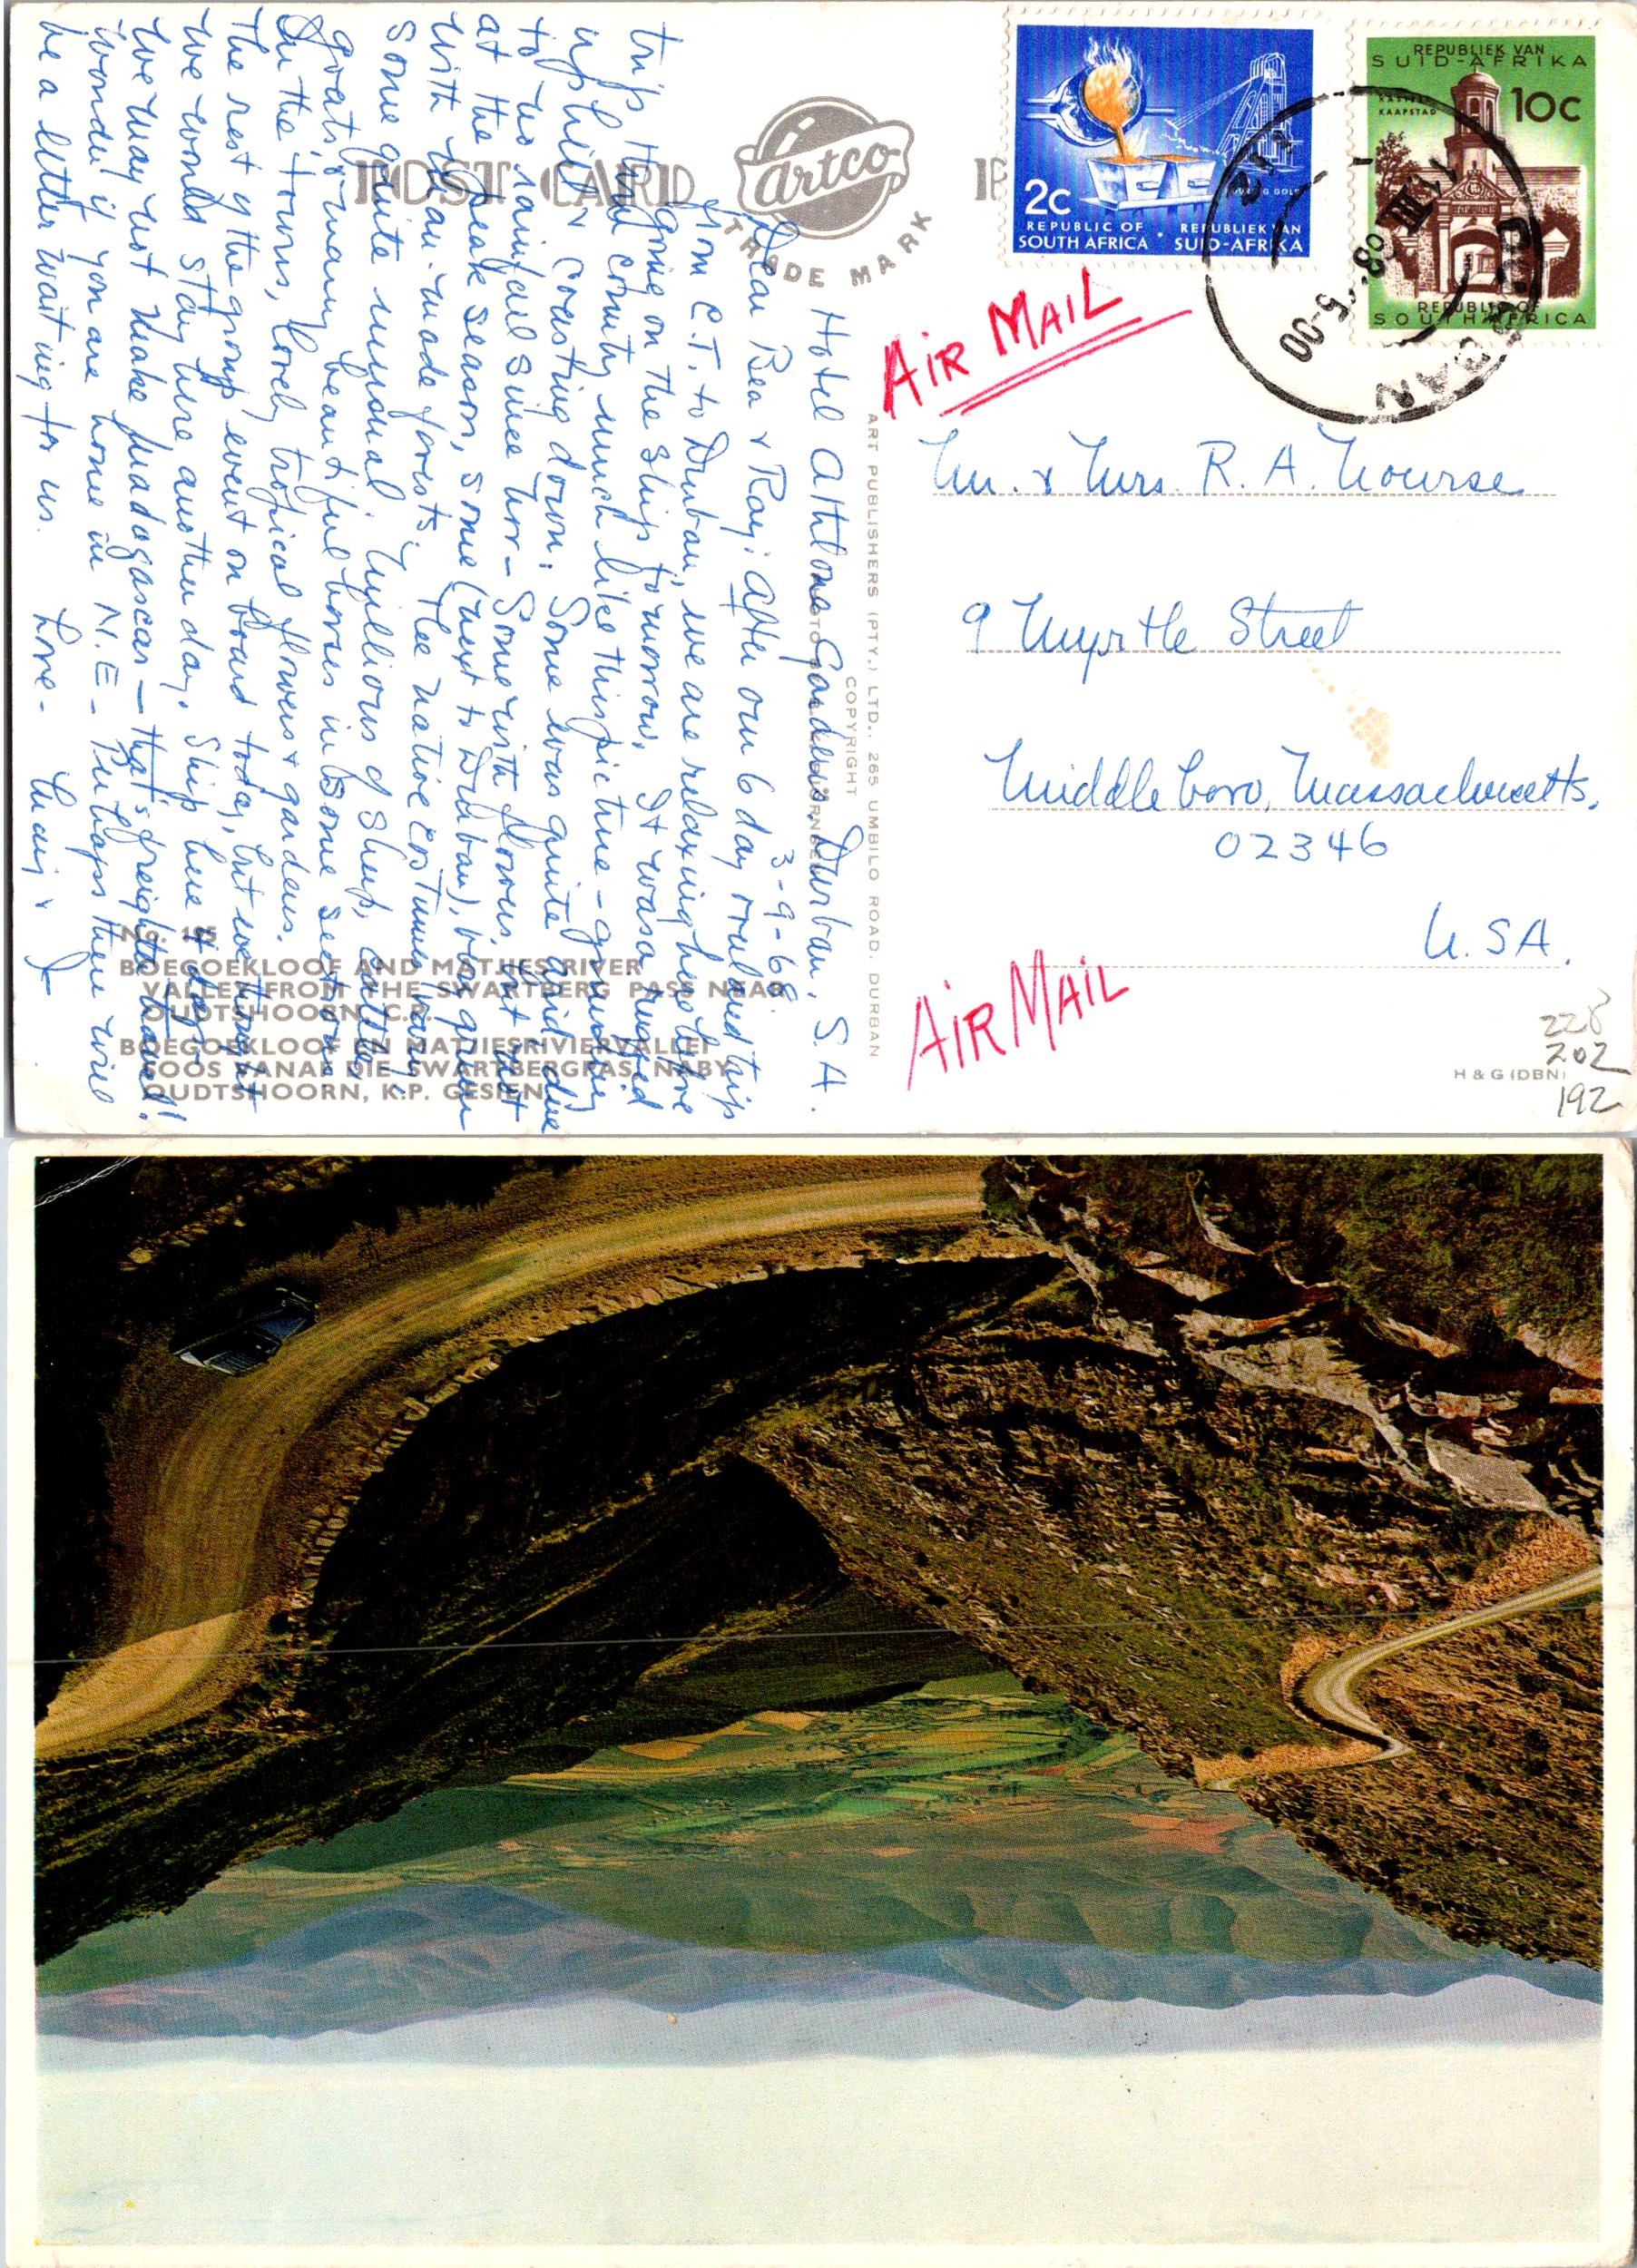 POST CARD
artco
TRADE MARK
2c
POURING GOLD
REPUBLIC OF SOUTH AFRICA · REPUBLIEK VAN SUID-AFRIKA
REPUBLIEK VAN
SUID-AFRIKA
KAAPSTAD
10c
REPUBLIC OF
SOUTH AFRICA
DURBAN
5-00
AIR MAIL
Mr. & Mrs. R. A. Nourse
9 Myrtle Street
Middleboro, Massachusetts.
02346
U.S.A.
AIR MAIL
228
202
192
H & G (DBN)
ART PUBLISHERS (PTY.) LTD., 265 UMBILO ROAD, DURBAN
COPYRIGHT
Hotel Athlone Gardens, Durban, S.A.
3-9-68
Dear Bea & Ray: After our 6 day overland trip
from C.T. to Durban, we are relaxing here before
going on the ship tomorrow. It was a rugged
trip thru country much like this picture - grinding
uphill & coasting down. Some was quite arid due
to no rainfall since Nov - Some with flowers, but not
at the peak season, some (next to Durban), big green
with man-made forests. The native costumes vary,
some quite unusual. Millions of sheep, cattle,
goats & many beautiful horses in some sections
In the towns, lovely tropical flowers & gardens.
The rest of the group went on board today, but we thought
we would stay here another day. Ship here 4 days.
We may not make Madagascar - that's freighter travel!
Wonder if you are home in N.E. - Perhaps there will
be a letter waiting for us. Love -
No. 195
BOEGOEKLOOF AND MATJIES RIVER
VALLEY FROM THE SWARTBERG PASS NEAR
OUDTSHOORN, C.P.
BOEGOEKLOOF EN MATJIESRIVIERVALLEI
SOOS VANAF DIE SWARTBERGPAS, NABY
OUDTSHOORN, K.P. GESIEN